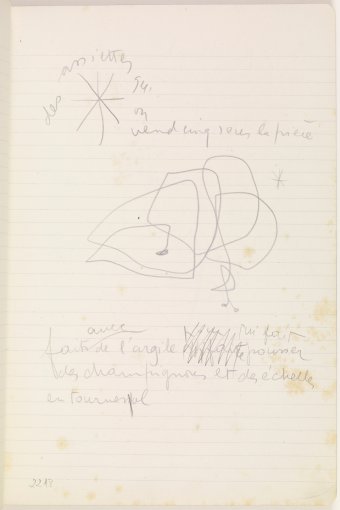 des assiettes
94.
on
vend cinq sous la pièce
avec
faits de l'argile qui fait
pousser
des champignons et des échelles
en tournesol
2218